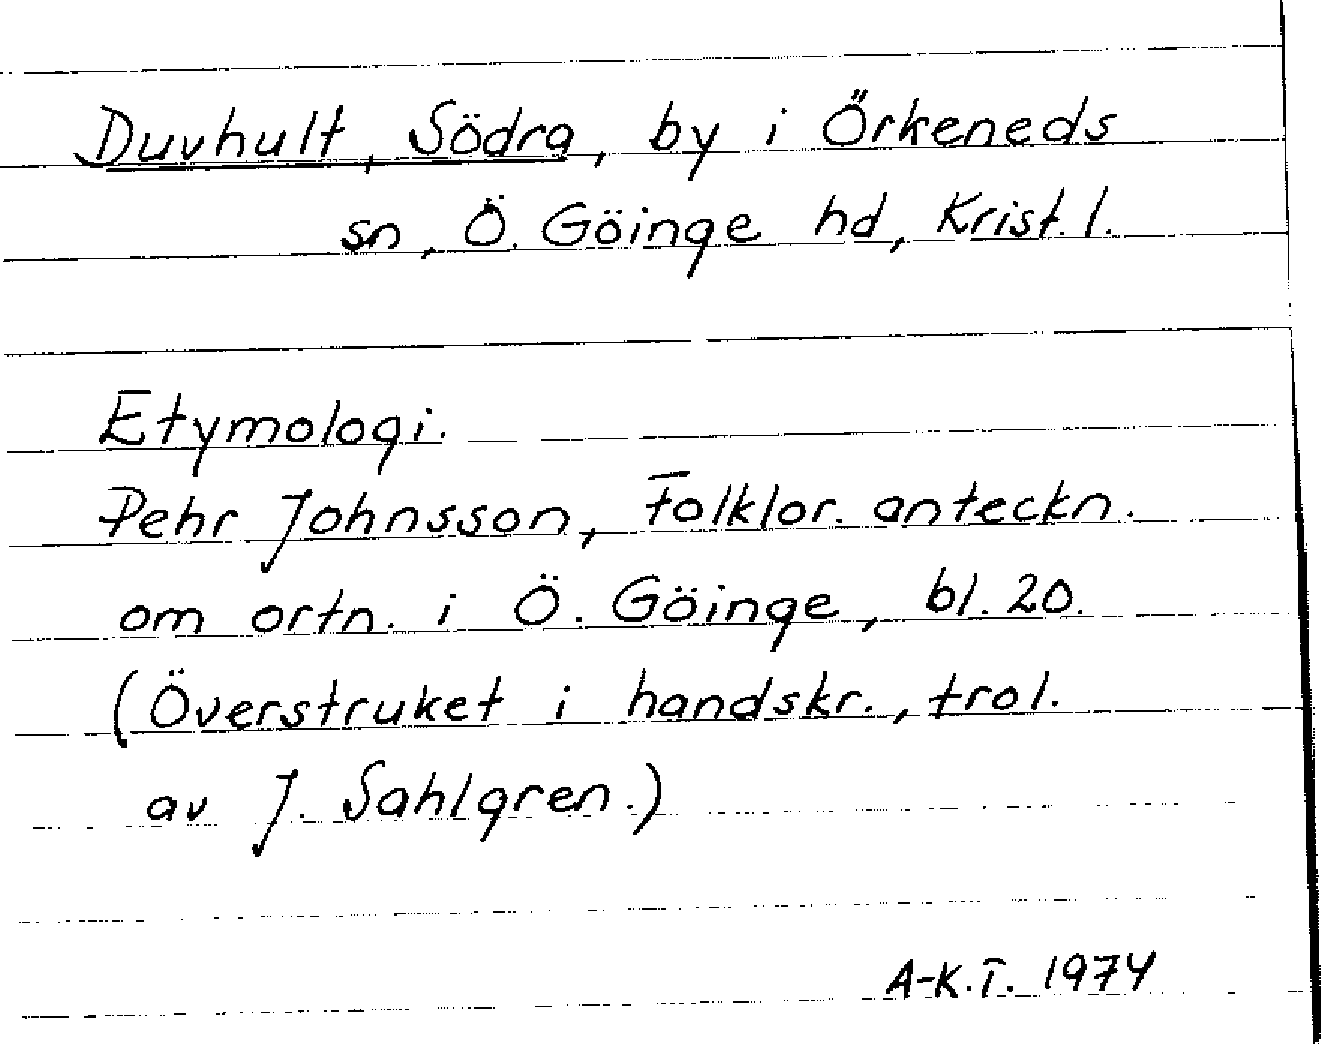 Duvhult, Södra, by i Örkeneds
sn, Ö. Göinge hd, Krist. l.
Etymologi.
Pehr Johnsson, Folklor. anteckn.
om ortn. i Ö. Göinge, bl. 20.
(Överstruket i handskr., trol.
av J. Sahlgren.)
A-K.T. 1974